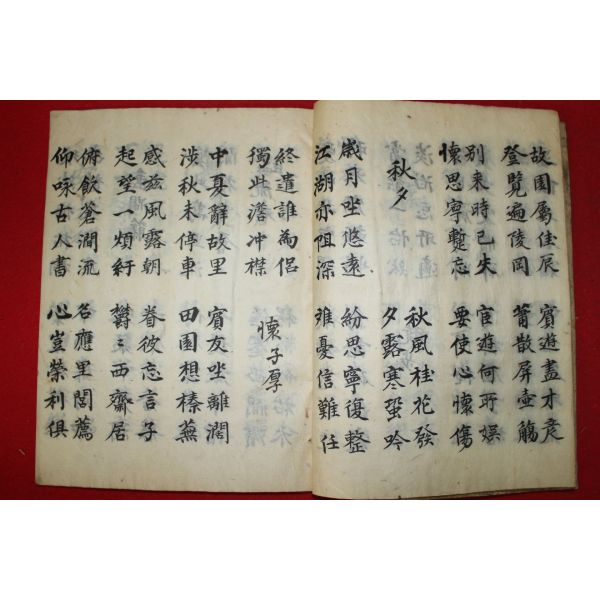 故園屬佳辰
登覽遍陵岡
賓遊盡才彥
簫散屏壺觴
别来時已失
懷思寧蹔忘
宦遊何所娛
要使心懷傷
秋夕
秋風桂花發
夕露寒蛩吟
歲月坐悠遠
江湖亦阻深
紛思寧復整
难憂信難任
終遣誰為侶
獨此澹冲襟
懷子厚
中夏辭故里
涉秋未停車
賓友坐離濶
田園想榛蕪
感兹風露朝
起望一煩紆
眷彼忘言子
欝〻西齋居
俯飲蒼澗流
仰咏古人書
名應里閭薦
心豈榮利俱